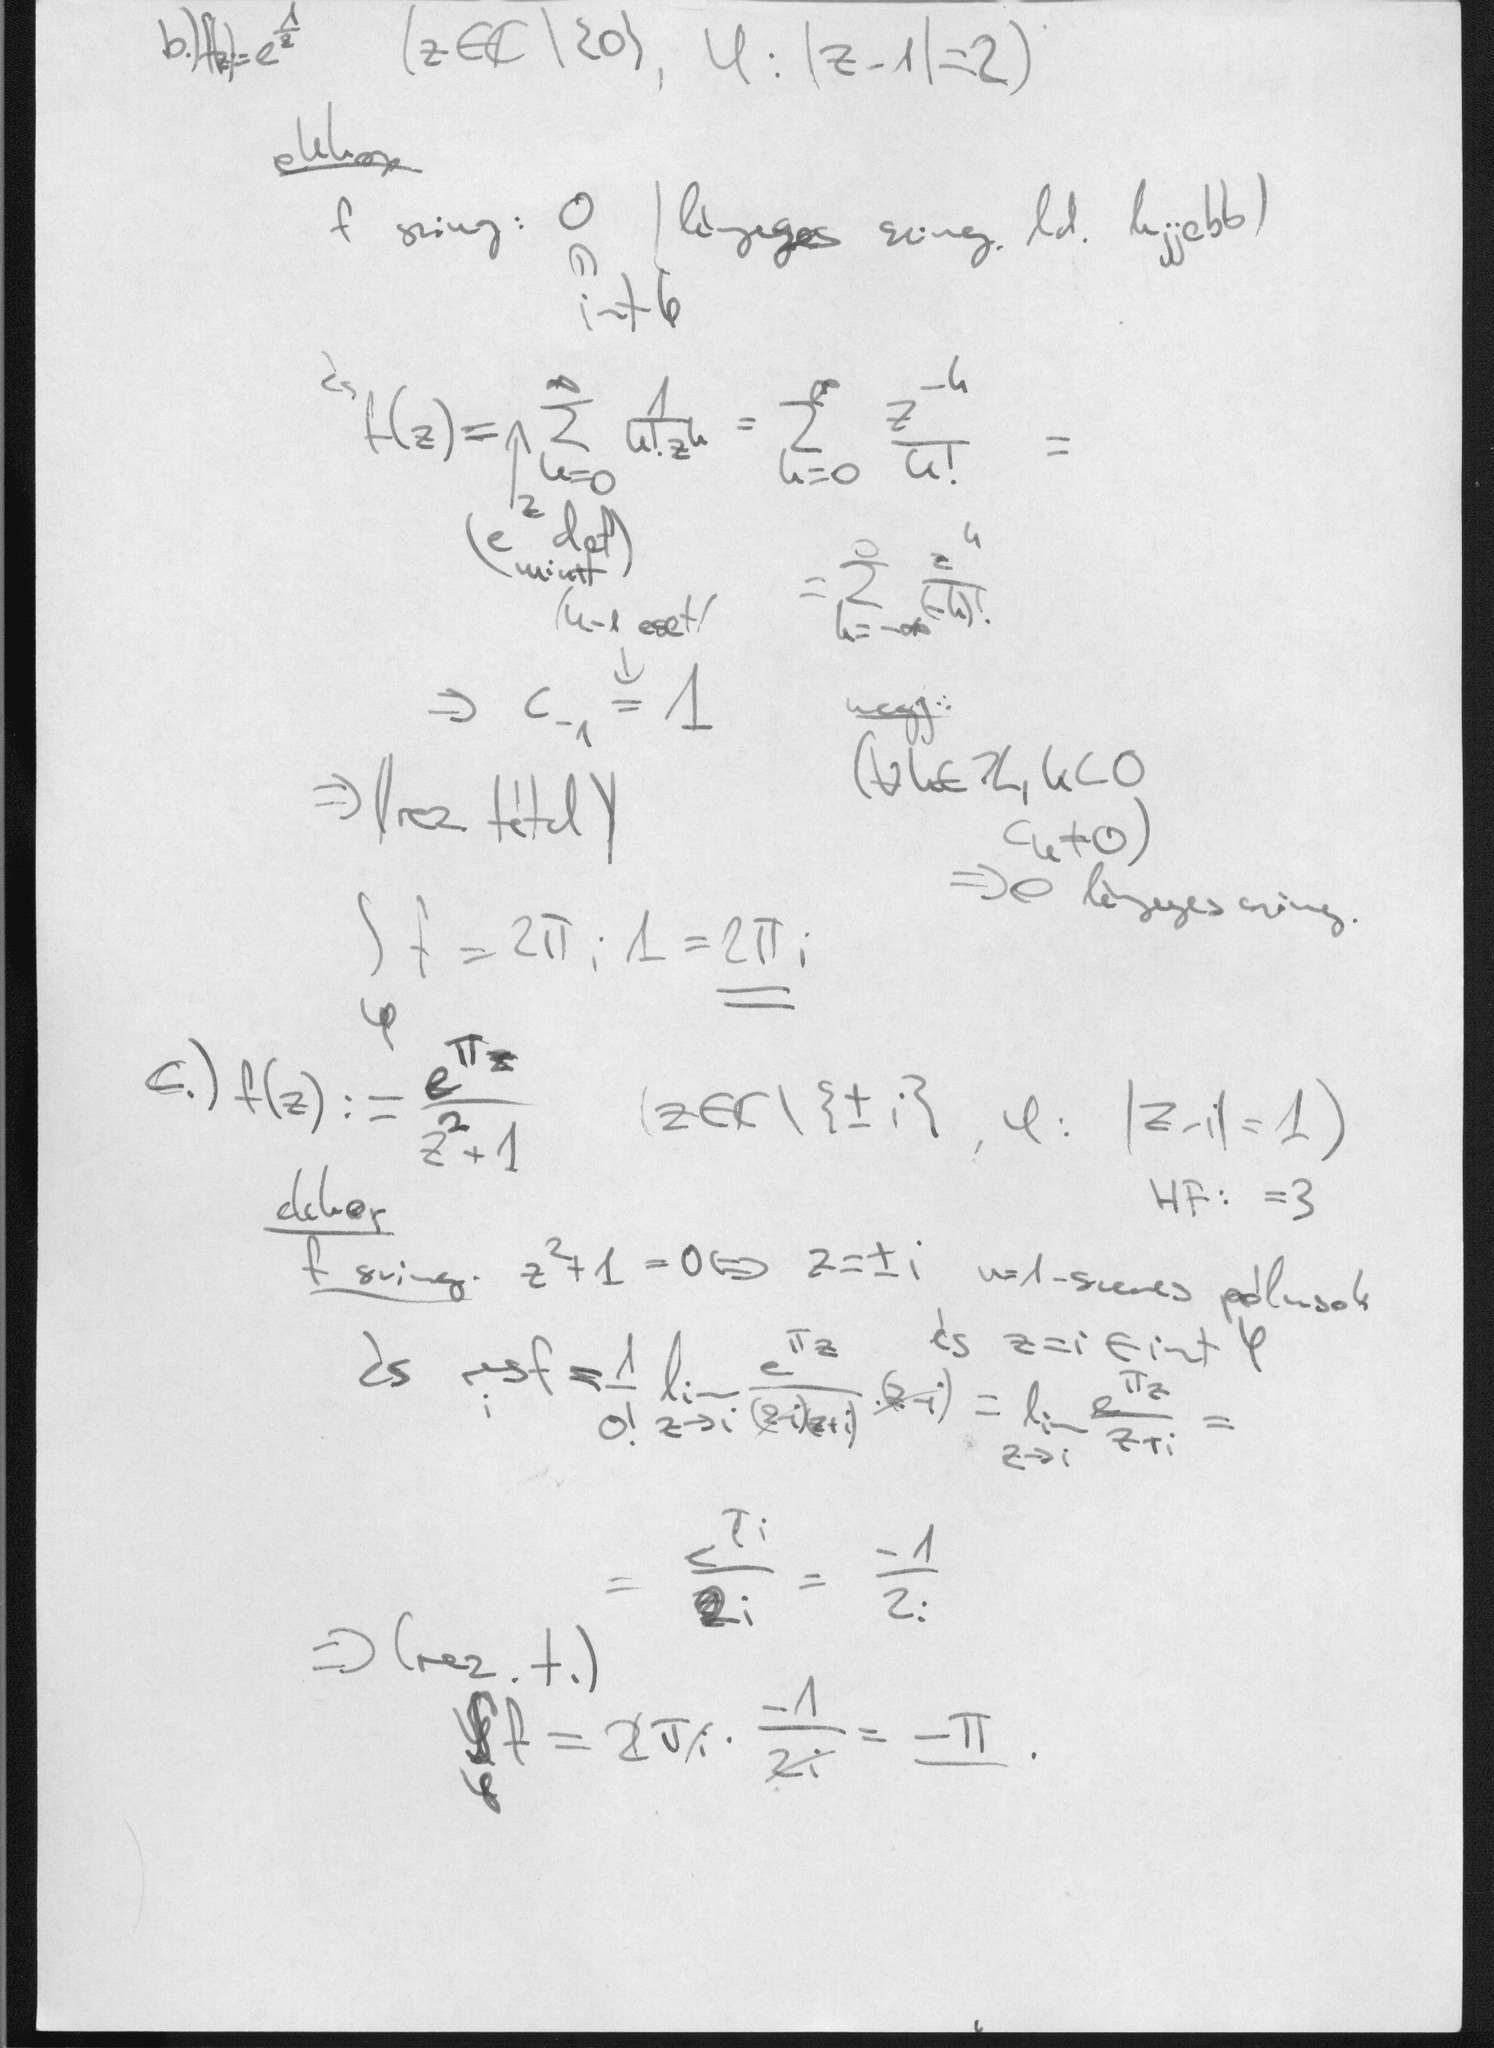 b.) f(z)=e^{1/z} (z∈ℂ\{0}, φ: |z-1|=2)
ekkor
f szing: 0 (lényeges szing. ld. lejjebb)
∩
int φ
és f(z) = ∑_{k=0}^{∞} 1/(k! z^k) = ∑_{k=0}^{∞} z^{-k}/k! =
(e^z def mint)
= ∑_{k=-∞}^{0} z^k/(-k)!
(k=-1 eset)
↓
⇒ c_{-1} = 1
megj.:
(∀k∈ℤ, k<0
c_k≠0)
⇒ 0 lényeges szing.
⇒ (rez tétel)
∫_φ f = 2πi 1 = 2πi
c.) f(z) := e^{πz}/(z²+1) (z∈ℂ\{±i}, φ: |z-i|=1)
HF: =3
ekkor
f szing. z²+1=0 ⇔ z=±i n=1-szeres pólusok
és z=i ∈ int φ
és res_i f = 1/0! lim_{z→i} e^{πz}/((z-i)(z+i)) · (z-i) = lim_{z→i} e^{πz}/(z+i) =
= e^{πi}/2i = -1/2i
⇒ (rez. t.)
∫_φ f = 2πi · -1/2i = -π.